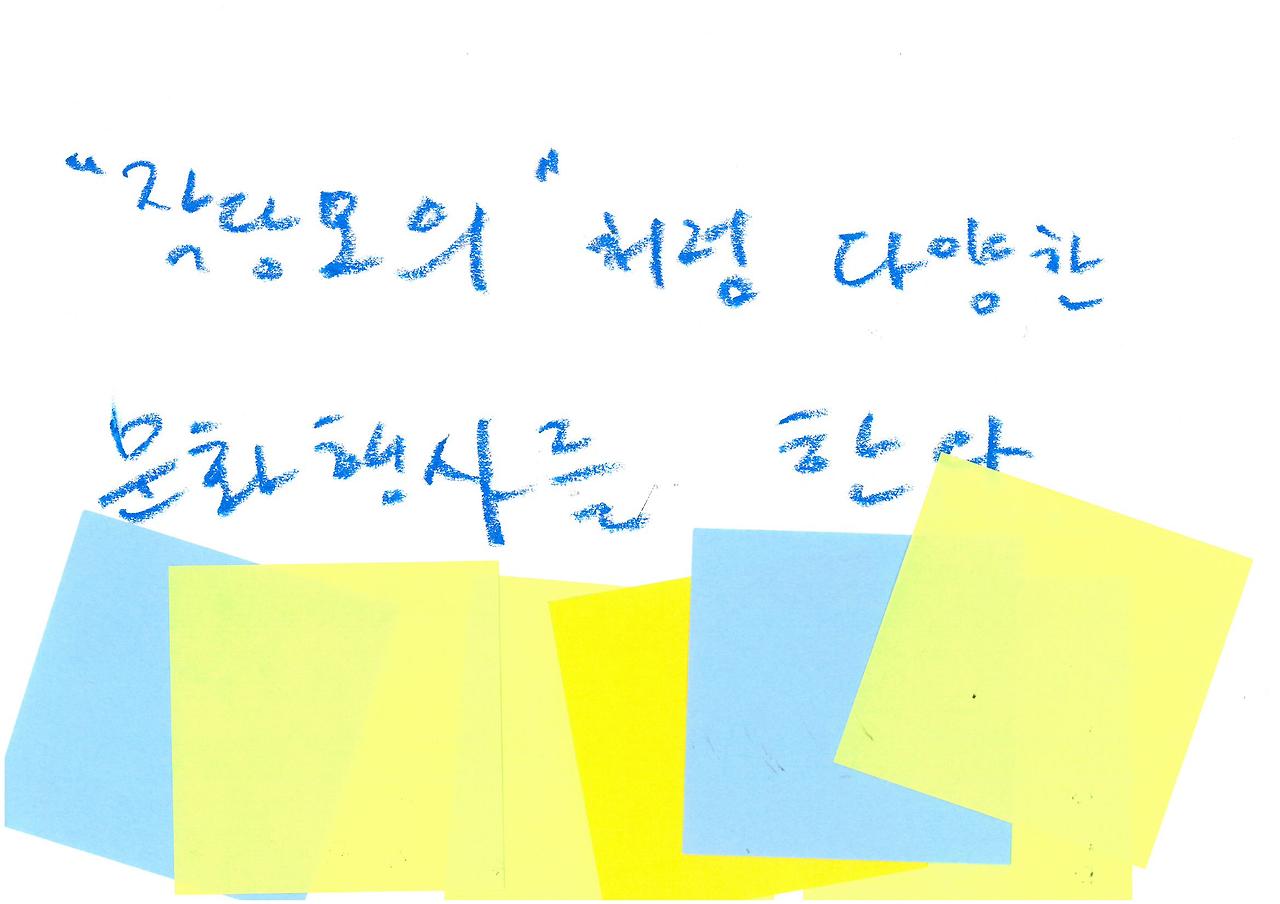 "작당모의" 처럼 다양한
문화행사를 한